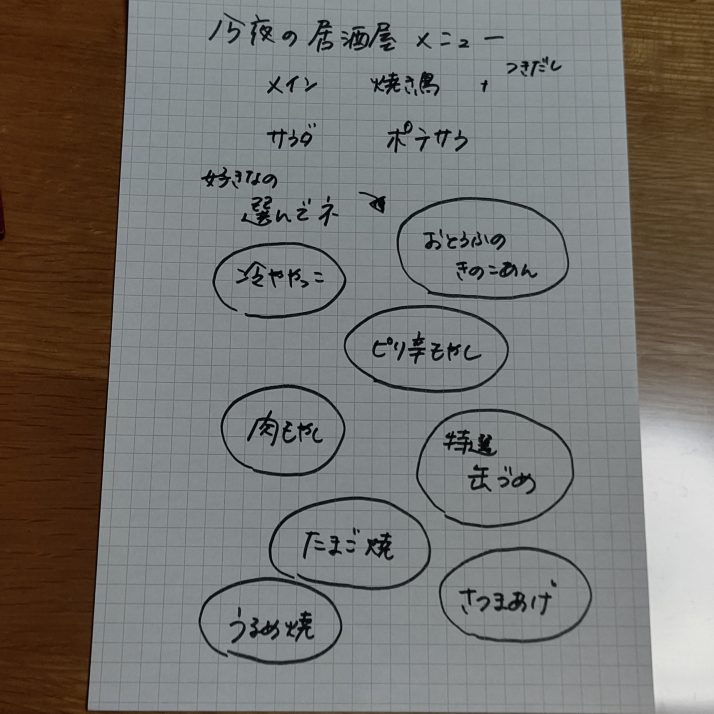 今夜の居酒屋メニュー
メイン 焼き鳥 + つきだし
サラダ ポテサラ
好きなの
選んでネ
おとうふの
きのこあん
冷ややっこ
ピリ辛もやし
肉もやし
特選
缶づめ
たまご焼
さつまあげ
うるめ焼